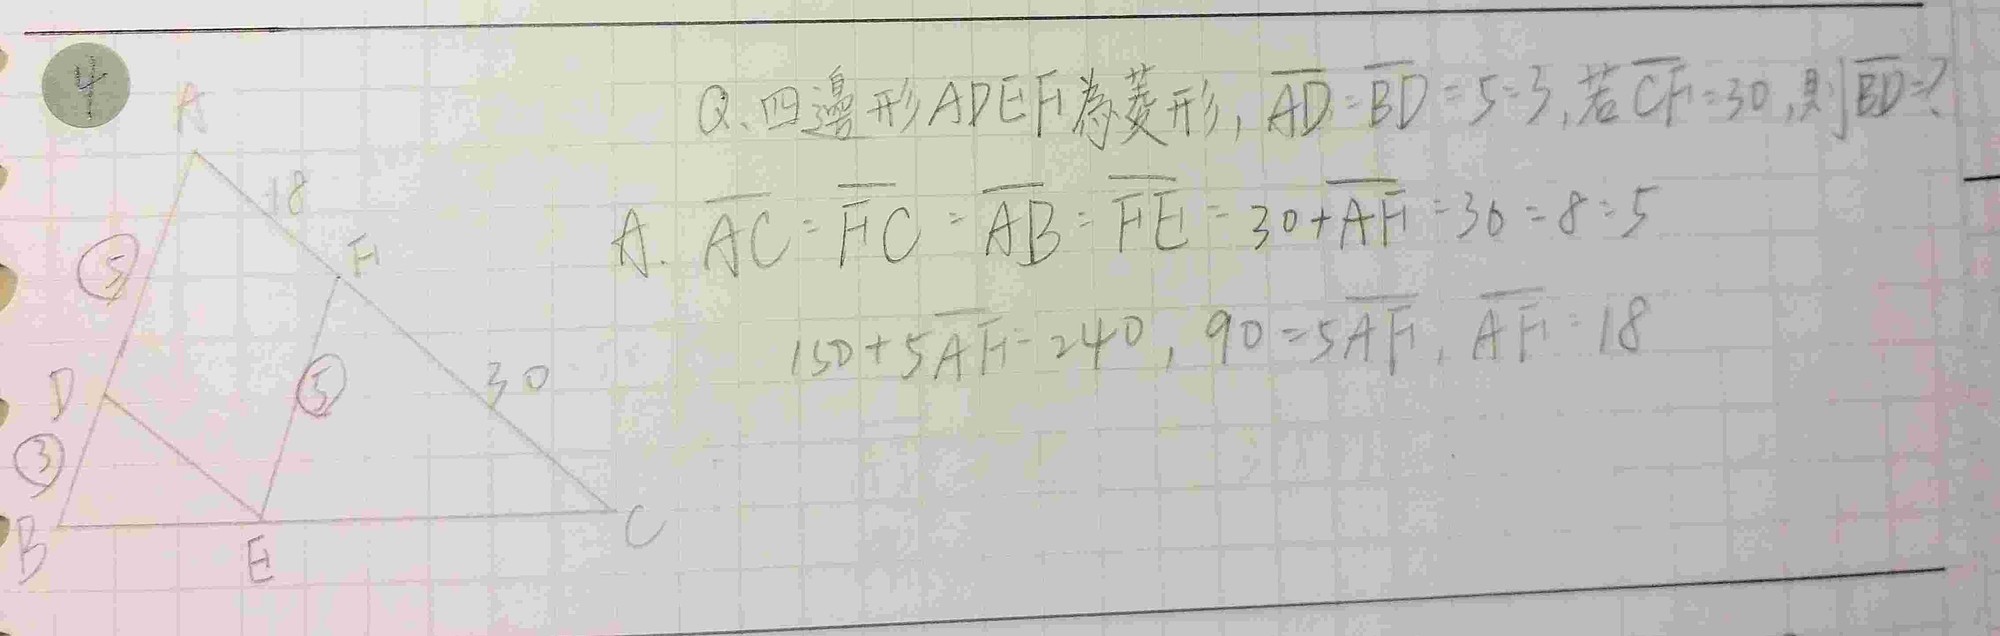 4
Q. 四邊形ADEF為菱形, AD:BD=5:3, 若CF=30, 則BD=?
A. AC:FC=AB:FE=30+AF:30=8:5
150+5AF=240, 90=5AF, AF=18
A
18
F
5
30
D
5
3
B
E
C